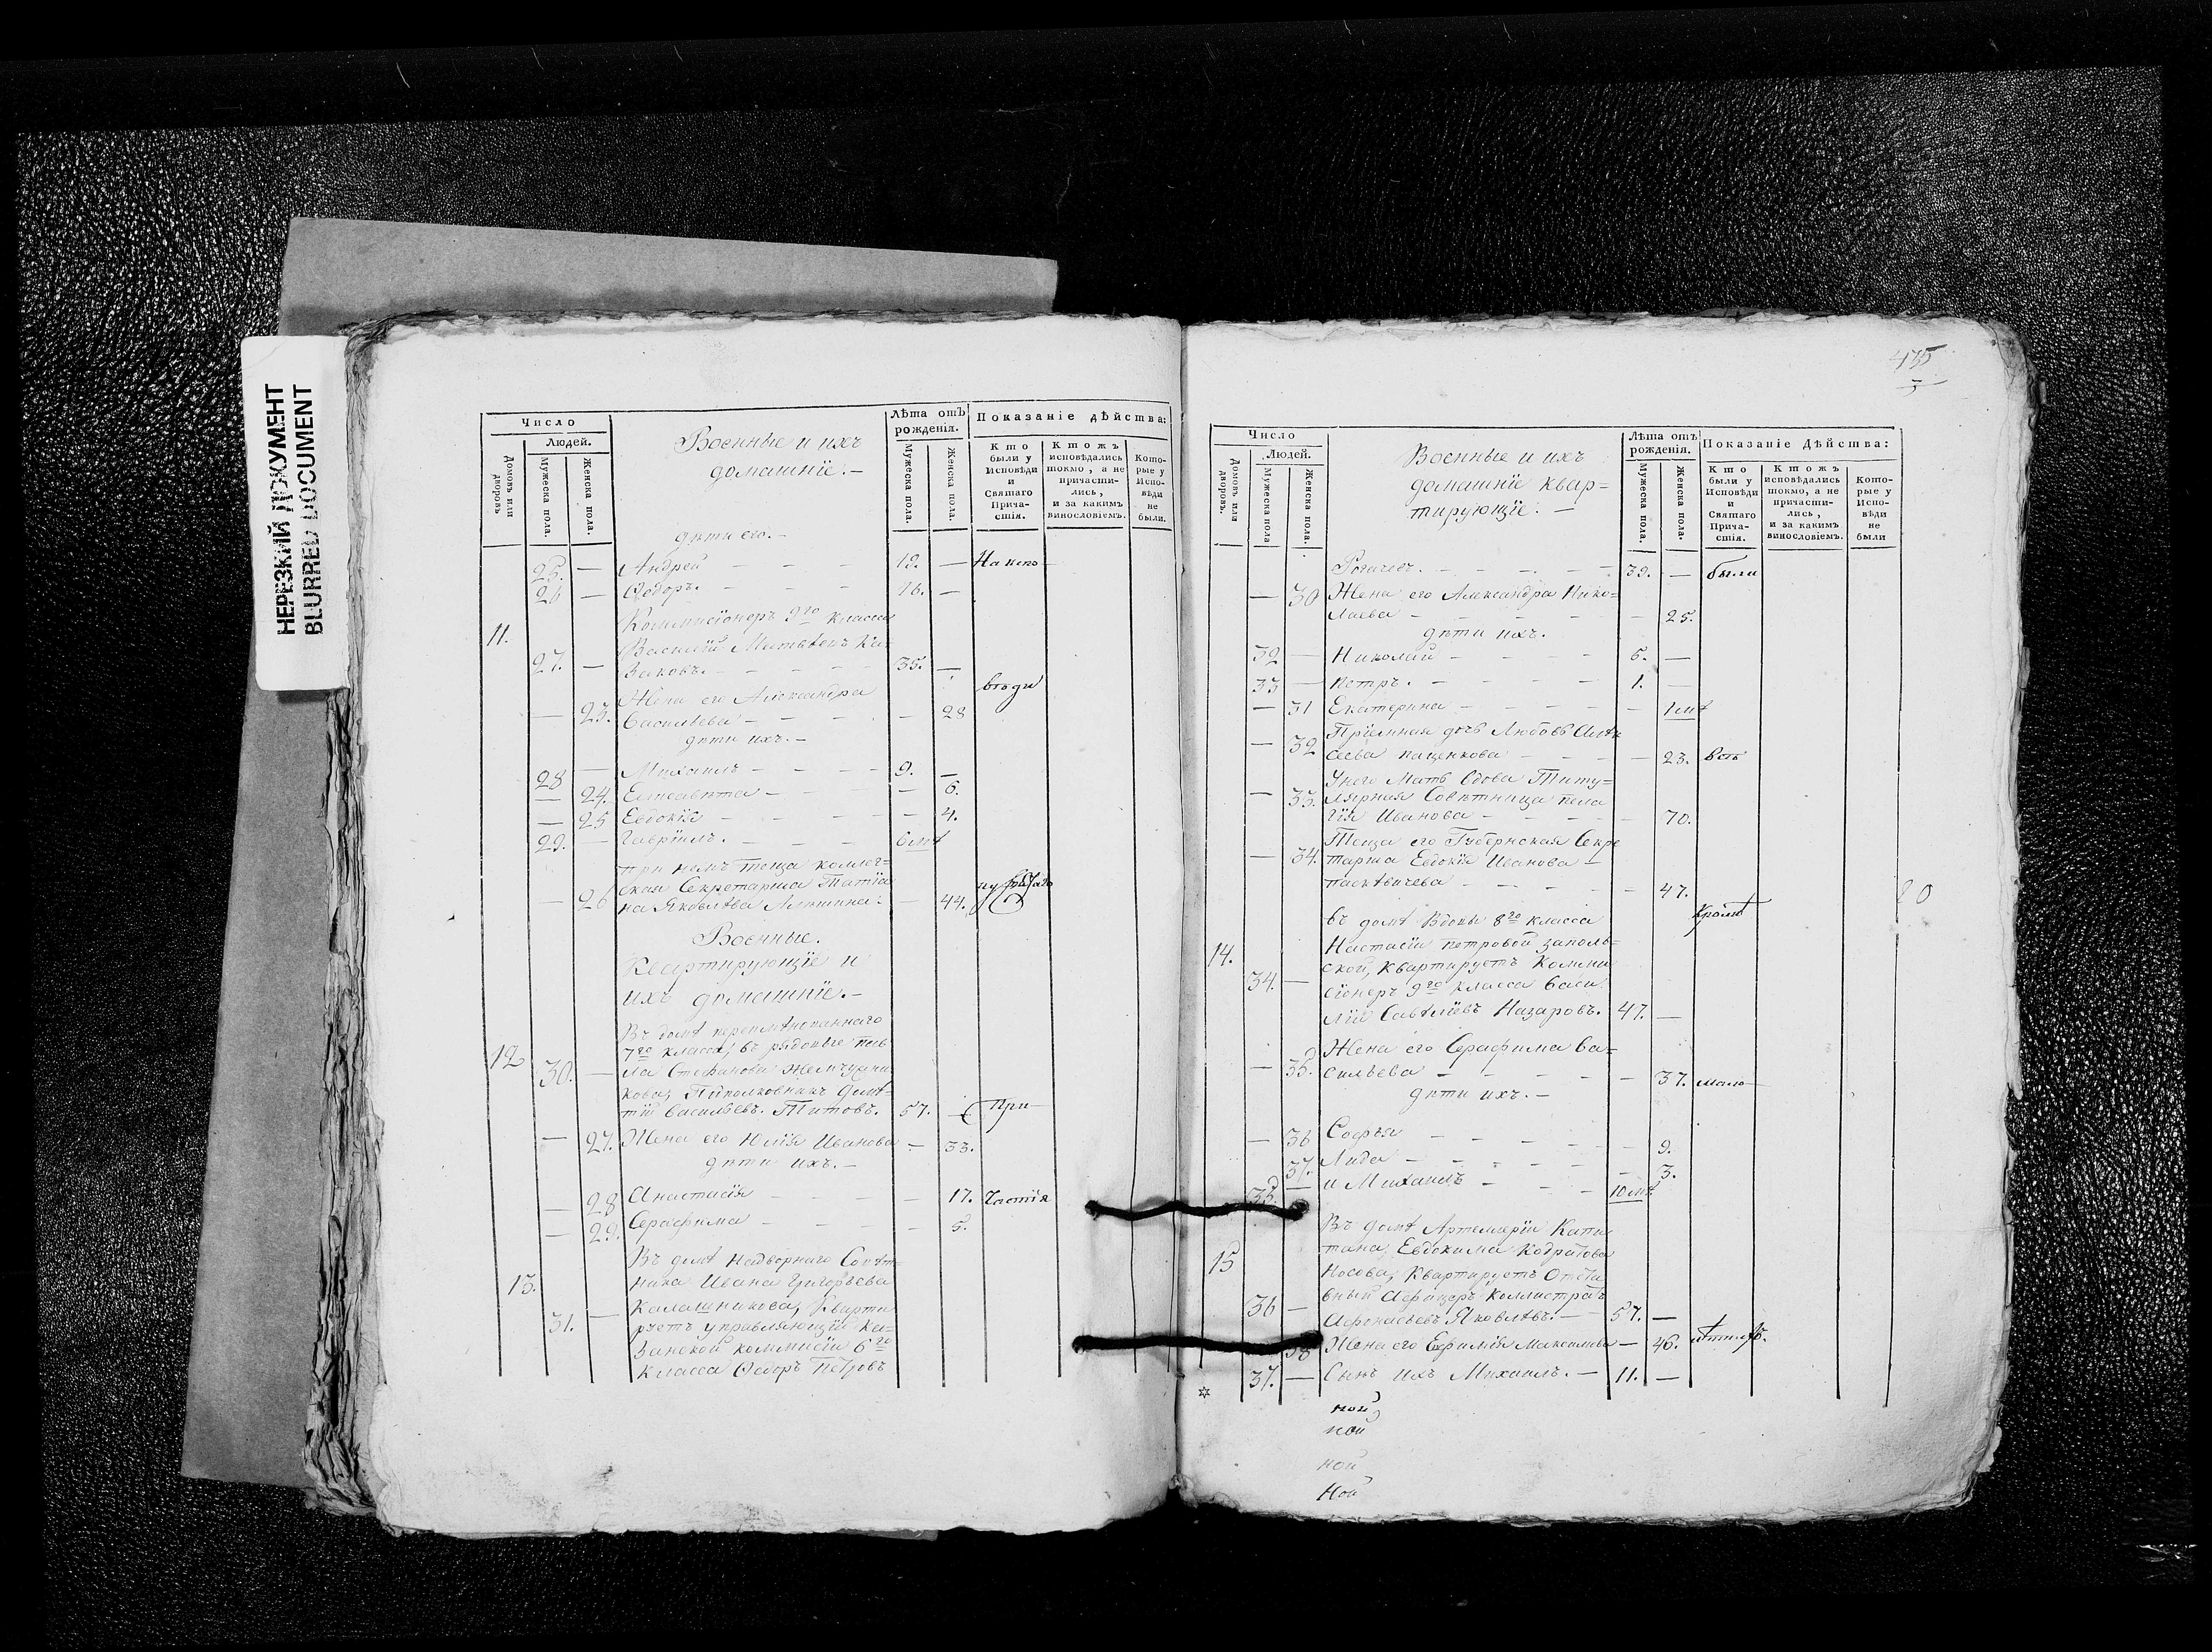 НЕРЕЗКИЙ ДОКУМЕНТ
BLURRED DOCUMENT
Число
Людей.
Домовъ или дворовъ
Мужеска пола.
Женска пола.
Военные и ихъ
домашнїе. –
Лѣта отъ
рожденія.
Мужеска пола.
Женска пола.
Показаніе дѣйства:
Кто были у Исповѣди и Святаго Прича-стія.
Ктожъ исповѣдались токмо, а не причасти-лись, и за какимъ винословіемъ.
Кото-рые у Испо-вѣди не были.
дѣти его. –
25. — Андрей — — — 19. — На испо
26 — Ѳедоръ. — — — 16. —
11. Коммисїонеръ 9го класса
Василїй Ка-
27. — заковъ. — — — 35. —
Жена его Александра
— 23. Васильева — — — — 28
дѣти ихъ. –
28 — Михаилъ — — — 9. —
— 24. Елисавѣта — — — — 6.
— 25 Евдокїя — — — — 4.
29. — Гаврїилъ. — — — 6 мѣ
При немъ теща коллеж-
ская Секретарша Татїа
— 26 на Яковлева — 44.
Военные.
Квартирующїе и
ихъ домашнїе. –
12 Въ домѣ
7го класса,
30. — ла Стефанова Жемчужни
кова, Полковникъ Дми-
трїй Васильевъ Титовъ. 57. — При
— 27. Жена его Юлїя Иванова — 33.
дѣти ихъ. –
— 28 Анастасїя — — — — 17. частїя
— 29. Серафима — — — — 5.
Въ домѣ Надворнаго Совѣт-
13. ника Ивана Григорьева
Калашникова, Кварти
31. — руетъ управляющїй Ка-
занской коммисїи 6го
класса Ѳедоръ Петровъ
435
Число
Людей.
Домовъ или дворовъ.
Мужеска пола
Женска пола.
Военные и ихъ
домашнїе квар=
тирующїе. —
Лѣта отъ
рожденія.
Мужеска пола.
Женска пола.
Показаніе Дѣйства:
Кто были у Исповѣди и Святаго Прича-стія.
Ктожъ исповѣдались токмо, а не причасти-лись, и за какимъ винословіемъ.
Кото-рые у Испо-вѣди не были
Рогачевъ. — — — — 39. — были
— 30 Жена его Александра Нико=
лаева — — — — — 25.
дѣти ихъ.
32 — Николай — — — — 5. —
33 — Петръ. — — — — 1. —
— 31 Екатерина — — — — — 1 мѣ
— 32 Прїемная дочь Любовь Алѣк
сѣева Паценкова — — — 23. всѣ
У него Мать вдова Титу=
— 33. лярная Совѣтница Пела
гїя Иванова — — — — 70.
Теща его Губернская Секре
— 34. тарша Евдокїя Иванова —
— — — — — 47.
Кромѣ
20
въ домѣ Вдовы 8го класса
14. Настасїи Петровой Заполь=
ской, Квартируетъ Комми
34. — сїонеръ 9го класса Васи
лїй Савелїевъ Назаровъ. 47. —
Жена его Серафима Ва=
— 35. сильева — — — — 37. мало
дѣти ихъ. –
— 36 Софья — — — — — 9.
37. Лида — — — — — 3.
35. и Михаилъ — — — 10 мѣ
Въ домѣ Артиллерїи Капи
15 тана, Евдокима Кодратова
Носова, Квартируетъ Отста
36 — вный Афицеръ
Афонасьевъ Яковлевъ. — 57. —
38 Жена его Ефимїя Максимова — 46. лѣтныхъ.
37. — Сынъ ихъ Михаилъ. — 11. —
ной
ной
ной
Ной